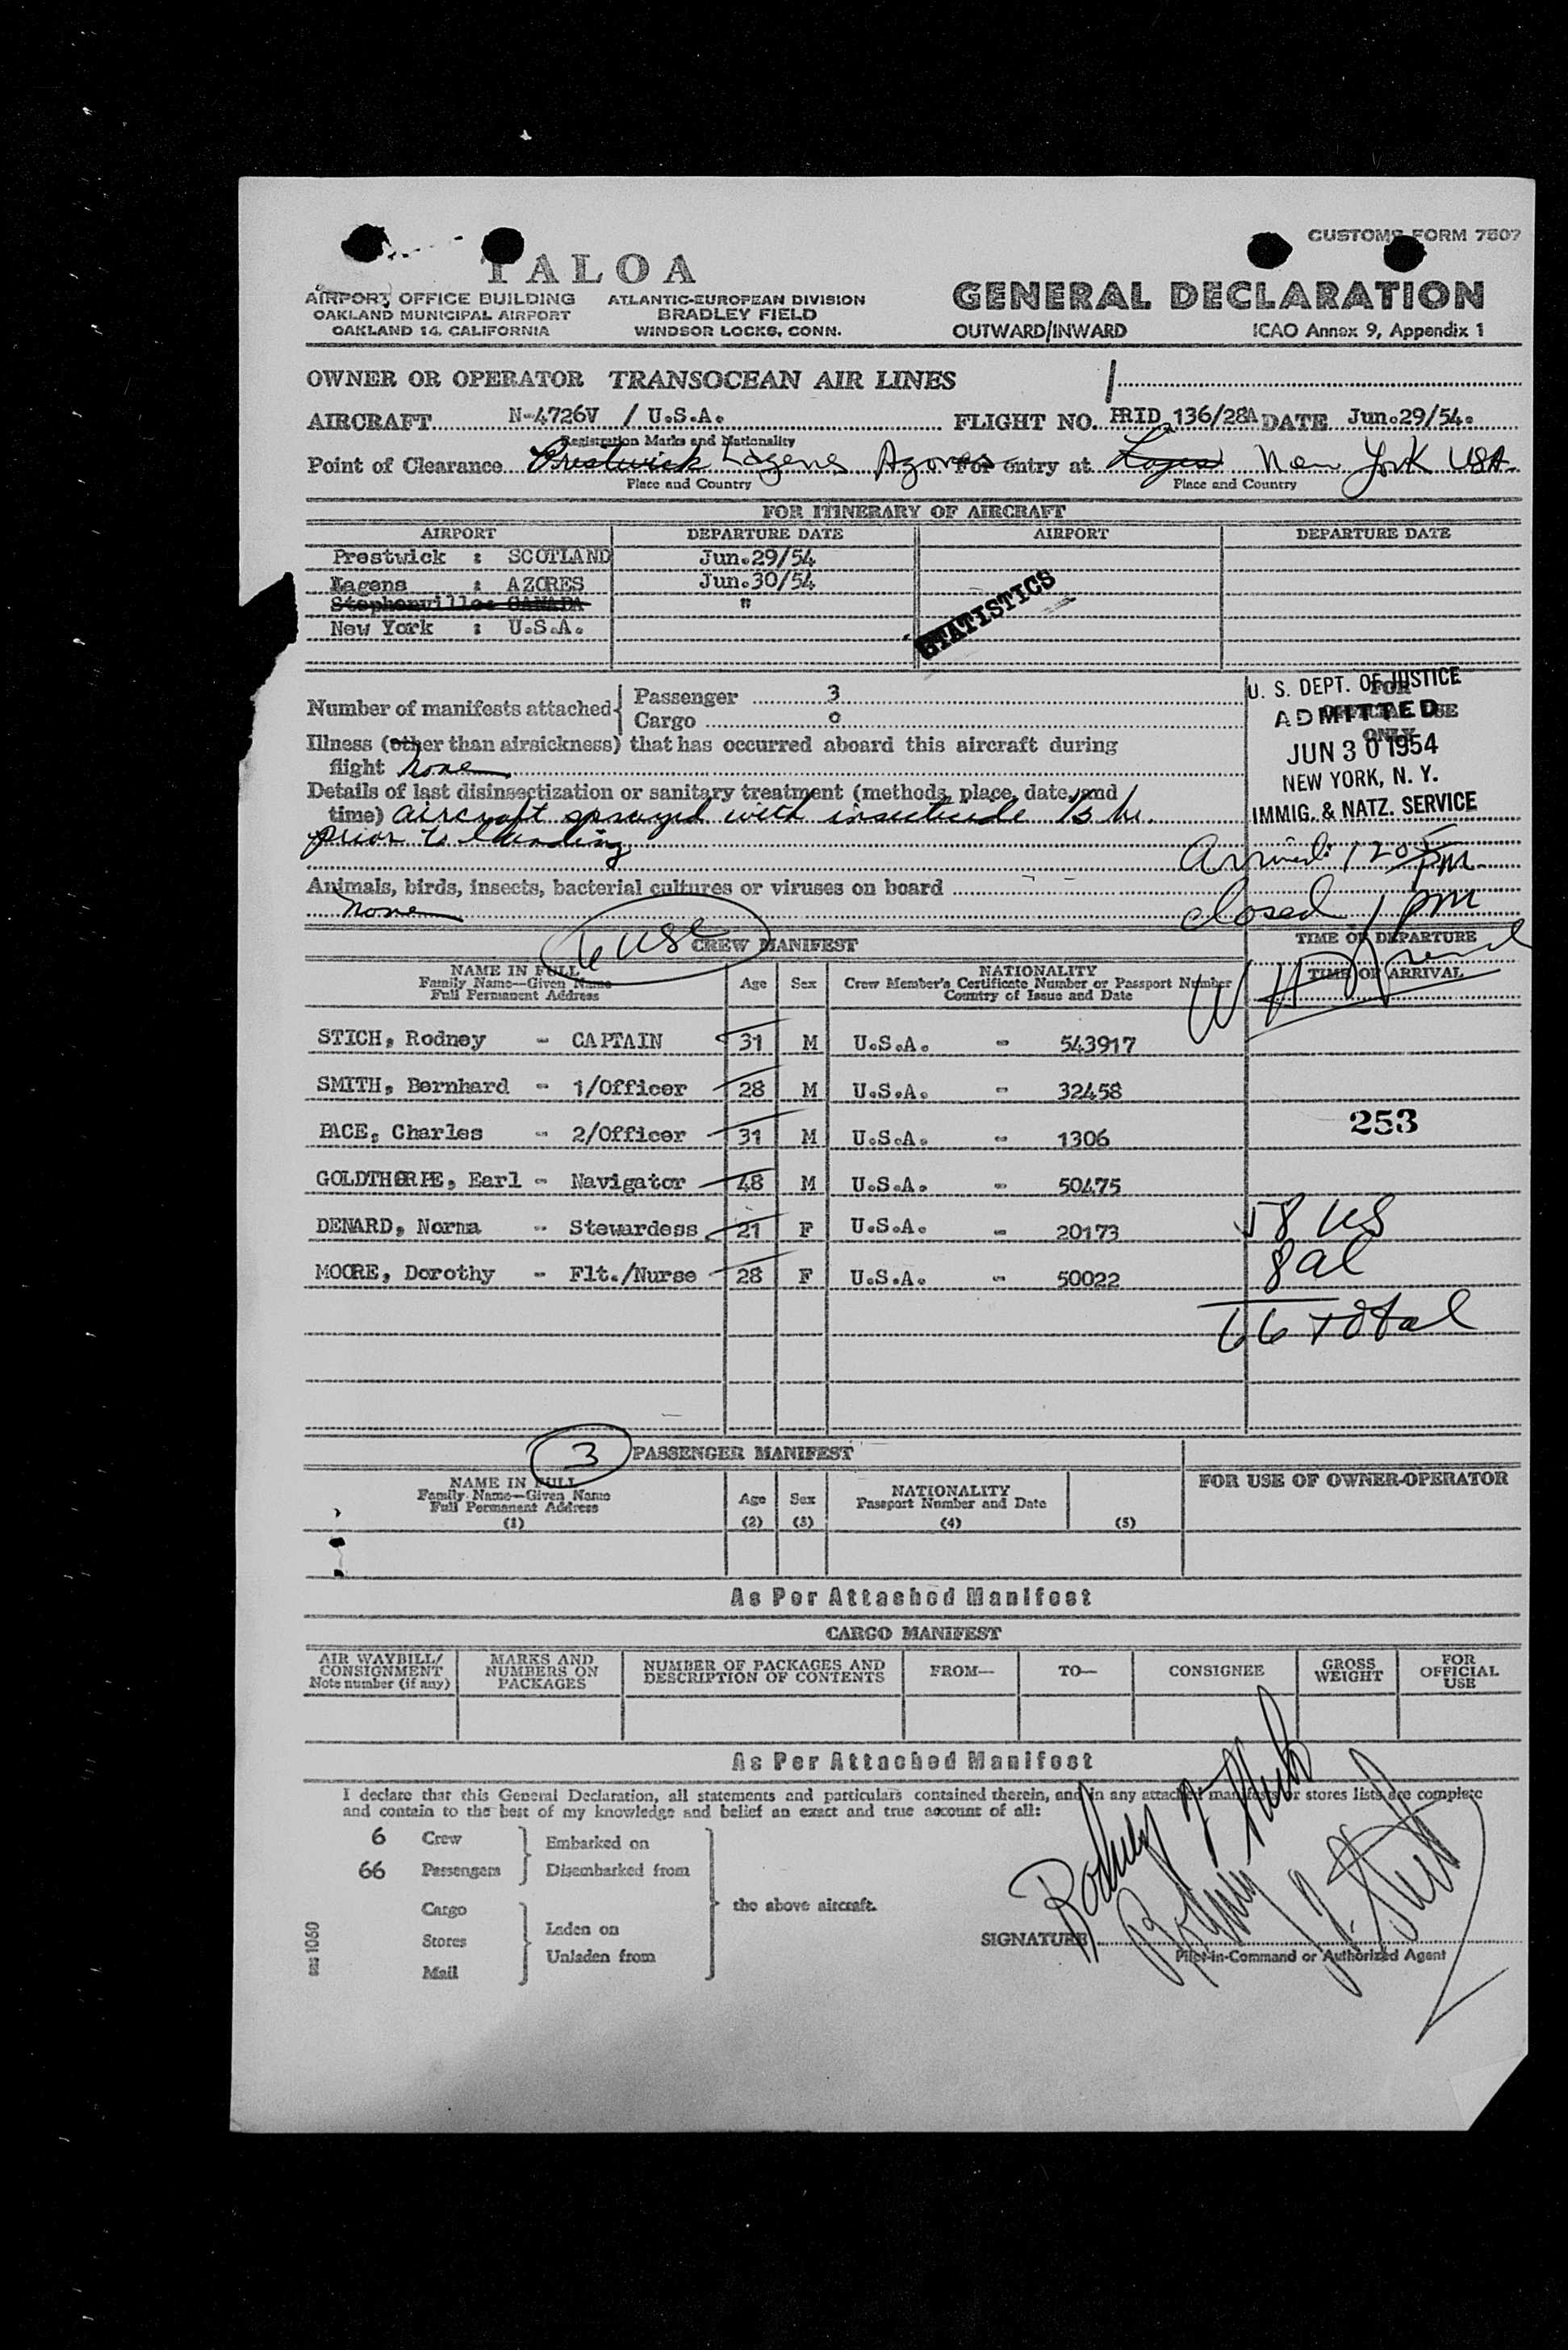 CUSTOMS FORM 7507
TALOA
AIRPORT OFFICE BUILDING
OAKLAND MUNICIPAL AIRPORT
OAKLAND 14, CALIFORNIA
ATLANTIC-EUROPEAN DIVISION
BRADLEY FIELD
WINDSOR LOCKS, CONN.
GENERAL DECLARATION
OUTWARD/INWARD ICAO Annex 9, Appendix 1
OWNER OR OPERATOR TRANSOCEAN AIR LINES
AIRCRAFT N-4726V / U.S.A. FLIGHT NO. PRID 136/28A DATE Jun.29/54.
Registration Marks and Nationality
Point of Clearance Prestwick Lagens Azores For entry at Lages New York USA
Place and Country Place and Country
FOR ITINERARY OF AIRCRAFT
AIRPORT DEPARTURE DATE AIRPORT DEPARTURE DATE
Prestwick : SCOTLAND Jun.29/54
Lagens : AZORES Jun.30/54
Stephenville: CANADA "
New York : U.S.A.
STATISTICS
Number of manifests attached
Passenger 3
Cargo 0
FOR OFFICIAL USE ONLY
U. S. DEPT. OF JUSTICE
ADMITTED
JUN 30 1954
NEW YORK, N. Y.
IMMIG. & NATZ. SERVICE
Illness (other than airsickness) that has occurred aboard this aircraft during
flight None
Details of last disinsectization or sanitary treatment (methods, place, date, and
time) aircraft sprayed with insecticide 1/2 hr.
prior to landing
Arrived: 1205 pm
Animals, birds, insects, bacterial cultures or viruses on board
None
closed 1 pm
6 USC
CREW MANIFEST
TIME OF DEPARTURE
TIME OF ARRIVAL
NAME IN FULL
Family Name—Given Name
Full Permanent Address
Age Sex
NATIONALITY
Crew Member's Certificate Number or Passport Number
Country of Issue and Date
STICH, Rodney - CAPTAIN 31 M U.S.A. - 543917
SMITH, Bernhard - 1/Officer 28 M U.S.A. - 32458
PACE, Charles - 2/Officer 31 M U.S.A. - 1306
253
GOLDTHORPE, Earl - Navigator 48 M U.S.A. - 50475
DENARD, Norma - Stewardess 21 F U.S.A. - 20173
58 US
MOORE, Dorothy - Flt./Nurse 28 F U.S.A. - 50022
8 al
66 total
3
PASSENGER MANIFEST
NAME IN FULL
Family Name—Given Name
Full Permanent Address
(1)
Age
(2)
Sex
(3)
NATIONALITY
Passport Number and Date
(4)
(5)
FOR USE OF OWNER-OPERATOR
As Per Attached Manifest
CARGO MANIFEST
AIR WAYBILL/
CONSIGNMENT
Note number (if any)
MARKS AND
NUMBERS ON
PACKAGES
NUMBER OF PACKAGES AND
DESCRIPTION OF CONTENTS
FROM—
TO—
CONSIGNEE
GROSS
WEIGHT
FOR
OFFICIAL
USE
As Per Attached Manifest
I declare that this General Declaration, all statements and particulars contained therein, and in any attached manifests or stores lists are complete
and contain to the best of my knowledge and belief an exact and true account of all:
6 Crew
66 Passengers
Embarked on
Disembarked from
Cargo
Stores
Mail
Laden on
Unladen from
the above aircraft.
Rodney F Stich
Rodney F. Stich
SIGNATURE
Pilot-in-Command or Authorized Agent